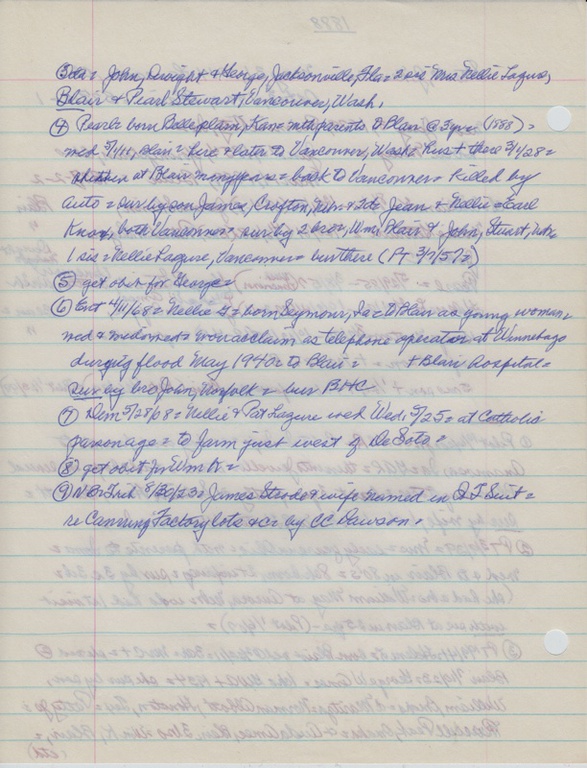 3 da = John, Dwight & George, Jacksonville, Fla = 2 sis Mrs Nellie Lazure,
Blair & Pearl Stewart, Vancouver, Wash.
④ Pearl = born Belleplain, Kan = mth parents to Blair @ 3 yrs (1888) =
md 5/1/11, Blair = here & later to Vancouver, Wash = hus + there 3/1/28 =
at Blair many years = back to Vancouver = killed by
auto = sur by son James, Crofton, Neb = & 2 da Jean & Nellie = Earl
Knox, both Vancouver = sur by 2 bro = Wm, Blair & John, Stuart, Neb
1 sis = Nellie Lazure, Vancouver = bur there (PT 3/7/57 =)
⑤ get obit for George =
⑥ Ent 4/11/68 = Nellie = born Seymour, Ia = to Blair as young woman =
md & widowed = won acclaim as telephone operator at Winnebago
during flood May 1940 = to Blair = + Blair hospital =
sur by bro John, Norfolk = bur BHC
⑦ Dem 5/28/08 = Nellie & Pat Lazure wed Wed. 5/25 = at Catholic
parsonage = to farm just west of DeSoto =
⑧ get obit for Wm K =
⑨ Trib 8/30/23 = James Strode & wife named in Q T Suit =
re Canning Factory lots &c = by CC Dawson.